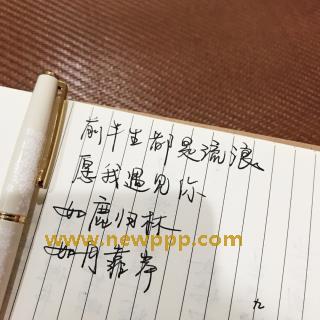 前半生都是流浪、
愿我遇见你
如鹿归林
如舟靠岸
www.newppp.com